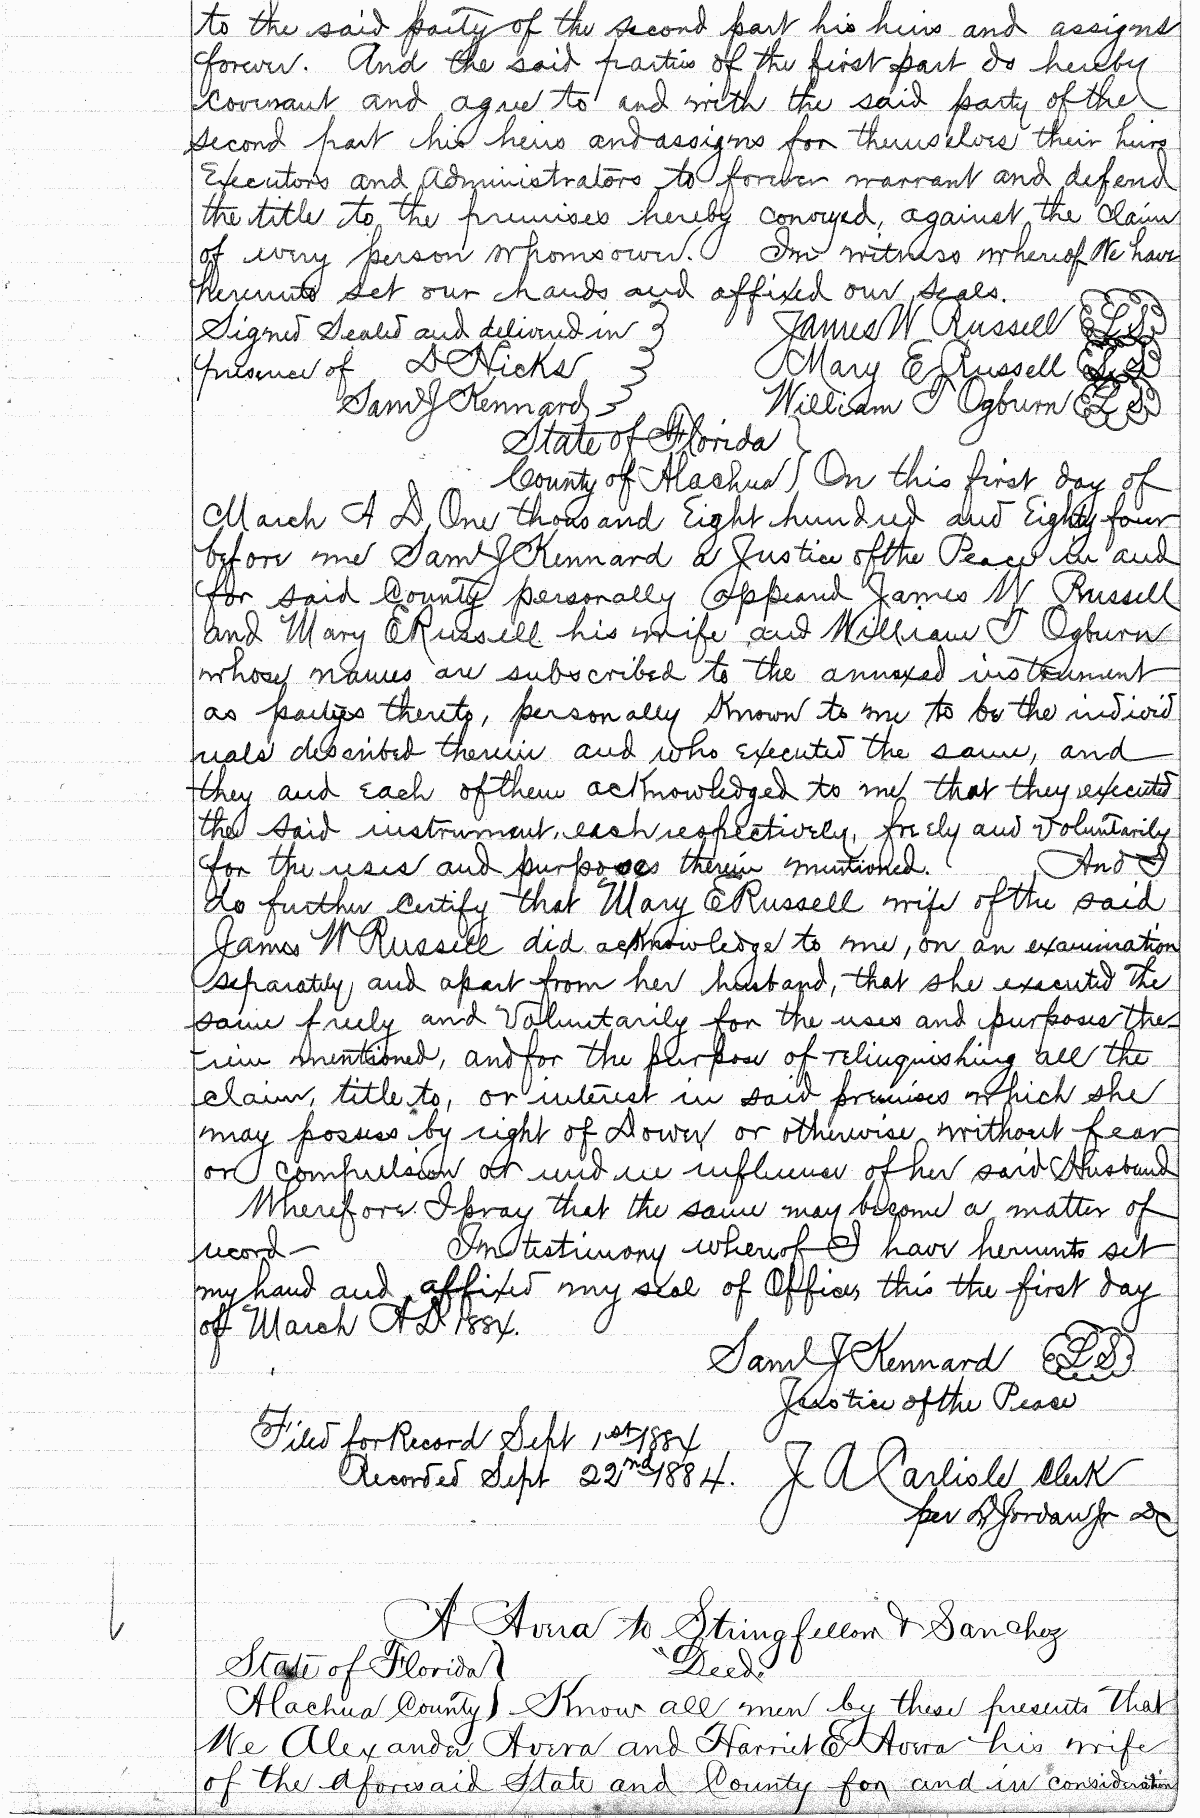 to the said party of the second part his heirs and assigns
forever. And the said parties of the first part do hereby
covenant and agree to and with the said party of the
second part his heirs and assigns for themselves their heirs
Executors and Administrators to forever warrant and defend
the title to the premises hereby conveyed, against the claim
of every person whomsoever. In witness whereof We have
hereunto set our hands and affixed our seals.
Signed Sealed and delivered in } James W Russell L S
presence of D Hicks } Mary E Russell L S
Saml J Kennard } William T Ogburn L S
State of Florida }
County of Alachua } On this first day of
March A D One thousand Eight hundred and Eighty four
before me Saml J Kennard a Justice of the Peace in and
for said County personally appeared James W Russell
and Mary E Russell his wife and William T Ogburn
whose names are subscribed to the annexed instrument
as parties thereto, personally Known to me to be the individ
uals described therein and who executed the same, and
they and each of them acKnowledged to me that they executed
the said instrument, each respectively, freely and voluntarily
for the uses and purposes therein mentioned. And I
do further certify that Mary E Russell wife of the said
James W Russell did acKnowledge to me, on an examination
separately and apart from her husband, that she executed the
same freely and Voluntarily for the uses and purposes the-
rein mentioned, and for the purpose of relinquishing all the
claim, title to, or interest in said premises which she
may possess by right of Dower or otherwise without fear
or compulsion or undue influence of her said Husband
Wherefore I pray that the same may become a matter of
record— In testimony whereof I have hereunto set
my hand and affixed my seal of Office, this the first day
of March A D 1884.
Saml J Kennard L S
Justice of the Peace
Filed for Record Sept 1st 1884
Recorded Sept 22nd 1884. J A Carlisle Clerk
per D Jordan Jr DC
A Avera to Stringfellow & Sanchez
State of Florida } "Deed"
Alachua County } Know all men by these presents that
We Alexander Avera and Harriet E Avera his wife
of the aforesaid State and County for and in consideration